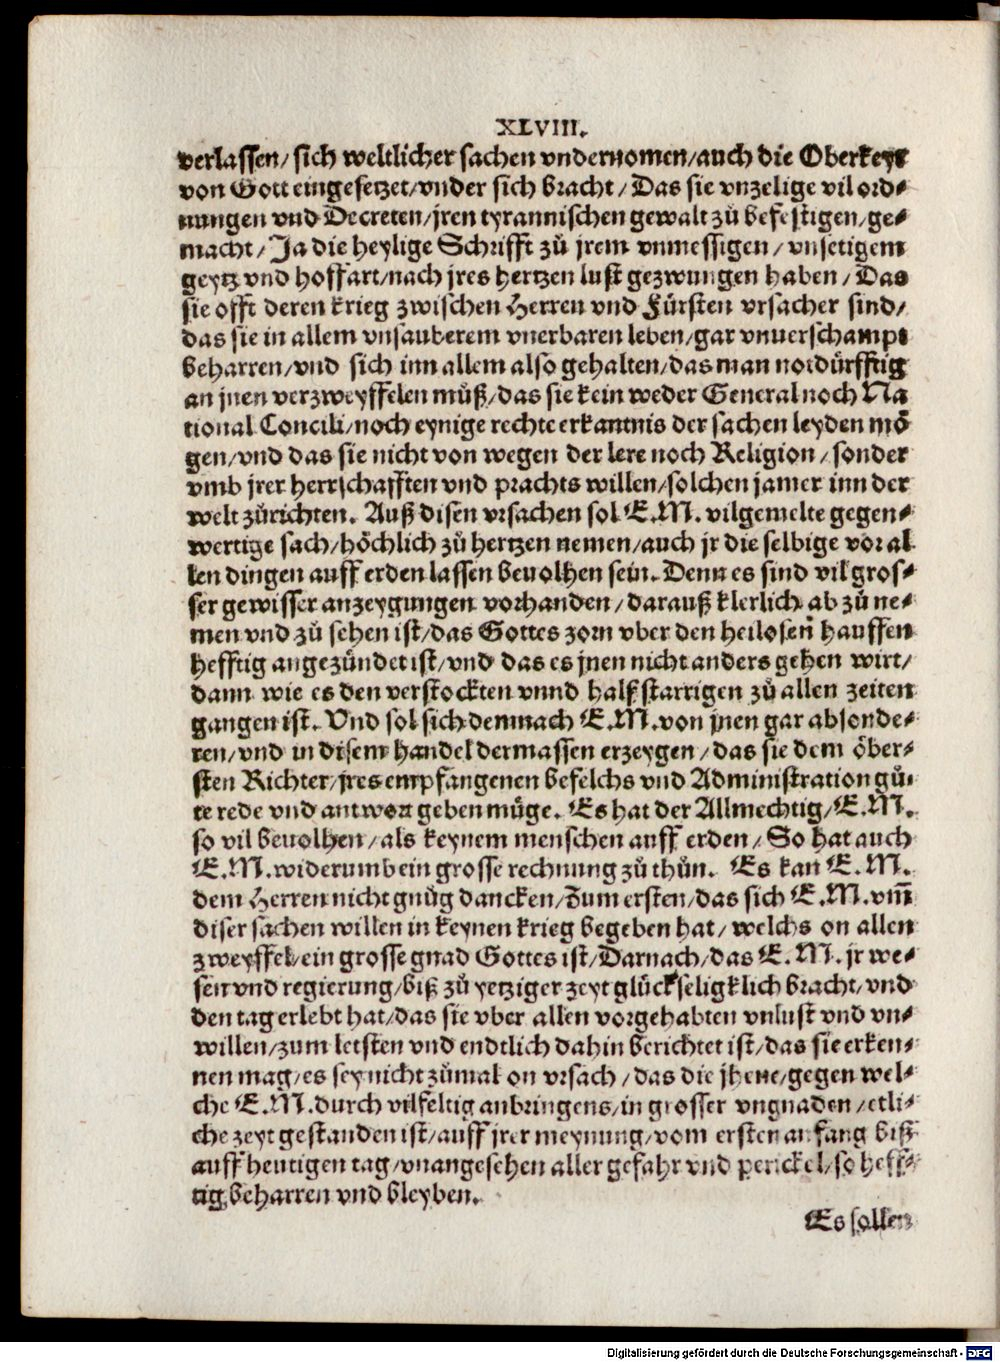 XLVIII.
verlassen/ sich weltlicher sachen vndernomen/auch die Oberkeyt
von Gott eingesetzet/vnder sich bracht/ Das sie vnzelige vil ord⸗
nungen vnd Decreten/jren tyrannischen gewalt zů befestigen/ge⸗
macht/ Ja die heylige Schrifft zů jrem vnmessigen/ vnsetigem
geytz vnd hoffart/nach jres hertzen lust gezwungen haben/ Das
sie offt deren krieg zwischen Herren vnd Fürsten vrsacher sind/
das sie in allem vnsauberem vnerbaren leben/gar vnuerschampt
beharren/vnd sich inn allem also gehalten/das man notdürfftig
an jnen verzweyffelen můß/das sie kein weder General noch Na
tional Concili/noch eynige rechte erkantnis der sachen leyden mö
gen/vnd das sie nicht von wegen der lere noch Religion/sonder
vmb jrer herrschafften vnd prachts willen/solchen jamer inn der
welt zůrichten. Auß disen vrsachen sol E.M. vilgemelte gegen⸗
wertige sach/höchlich zů hertzen nemen/auch jr die selbige vor al
len dingen auff erden lassen beuolhen sein. Denn es sind vil gros⸗
ser gewisser anzeygungen vorhanden/darauß klerlich ab zů ne⸗
men vnd zů sehen ist/das Gottes zorn vber den heilosen hauffen
hefftig angezündet ist/vnd das es jnen nicht anders gehen wirt/
dann wie es den verstockten vnnd halßstarrigen zů allen zeiten
gangen ist. Vnd sol sich demnach E.M. von jnen gar absonde⸗
ren/vnd in disem handel dermassen erzeygen/das sie dem öber⸗
sten Richter/jres empfangenen befelchs vnd Administration gů⸗
te rede vnd antwort geben müge. Es hat der Allmechtig/E.M.
so vil beuolhen/als keynem menschen auff erden/ So hat auch
E.M. widerumb ein grosse rechnung zů thůn. Es kan E.M.
dem Herren nicht gnůg dancken/Zum ersten/das sich E.M. vm̃
diser sachen willen in keynen krieg begeben hat/welchs on allen
zweyffel/ein grosse gnad Gottes ist/Darnach/das E.M. jr we⸗
sen vnd regierung/biß zů yetziger zeyt glückseligklich bracht/vnd
den tag erlebt hat/das sie vber allen vorgehabten vnlust vnd vn⸗
willen/zum letsten vnd endtlich dahin berichtet ist/das sie erken⸗
nen mag/es sey nicht zůmal on vrsach/das die jhene/gegen wel⸗
che E.M. durch vilfeltig anbringens/in grosser vngnaden/etli⸗
che zeyt gestanden ist/auff jrer meynung/vom ersten anfang biß
auff heutigen tag/vnangesehen aller gefahr vnd perickel/so heff⸗
tig beharren vnd bleyben.
Es sollen
Digitalisierung gefördert durch die Deutsche Forschungsgemeinschaft - DFG